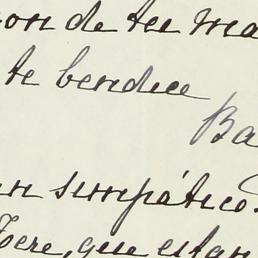 on de tu ma
te bendice
Ba
un simpático.
que estan